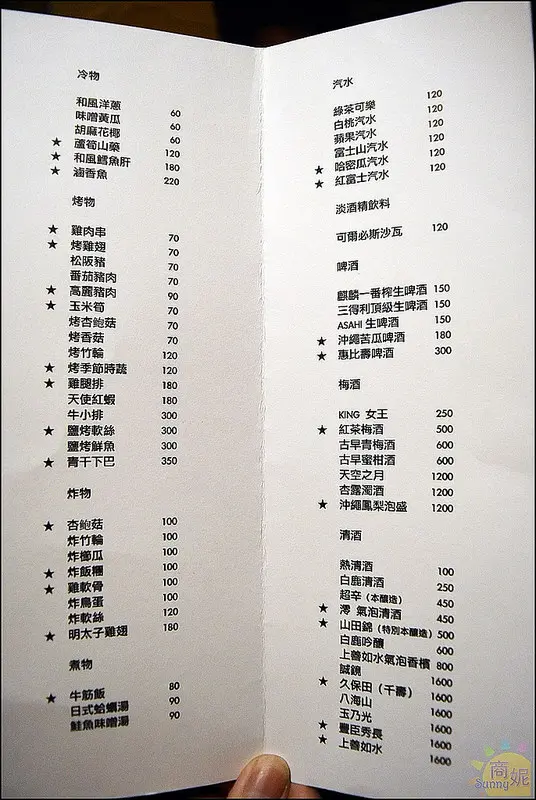 冷物
和風洋蔥 60
味噌黃瓜 60
胡麻花椰 60
★ 蘆筍山藥 120
★ 和風鱈魚肝 180
★ 滷香魚 220
烤物
★ 雞肉串 70
★ 烤雞翅 70
松阪豬 70
番茄豬肉 70
★ 高麗豬肉 90
★ 玉米筍 70
烤杏鮑菇 70
烤香菇 70
烤竹輪 120
★ 烤季節時蔬 120
★ 雞腿排 180
天使紅蝦 180
牛小排 300
★ 鹽烤軟絲 300
鹽烤鮮魚 300
★ 青干下巴 350
炸物
★ 杏鮑菇 100
炸竹輪 100
炸櫛瓜 100
★ 炸飯糰 100
★ 雞軟骨 100
炸鳥蛋 100
炸軟絲 120
★ 明太子雞翅 180
煮物
★ 牛筋飯 80
日式蛤蠣湯 90
鮭魚味噌湯 90
汽水
綠茶可樂 120
白桃汽水 120
蘋果汽水 120
富士山汽水 120
★ 哈密瓜汽水 120
★ 紅富士汽水 120
淡酒精飲料
可爾必斯沙瓦 120
啤酒
麒麟一番榨生啤酒 150
三得利頂級生啤酒 150
ASAHI 生啤酒 150
★ 沖繩苦瓜啤酒 180
★ 惠比壽啤酒 300
梅酒
KING 女王 250
★ 紅茶梅酒 500
古早青梅酒 600
古早蜜柑酒 600
天空之月 1200
杏露濁酒 1200
★ 沖繩鳳梨泡盛 1200
清酒
熱清酒 100
白鹿清酒 250
超辛（本釀造） 450
★ 澪 氣泡清酒 450
★ 山田錦（特別本釀造） 500
白鹿吟釀 600
上善如水氣泡香檳 800
誠鏡 1600
★ 久保田（千壽） 1600
八海山 1600
玉乃光 1600
★ 豐臣秀長 1600
★ 上善如水 1600
商妮
Sunny